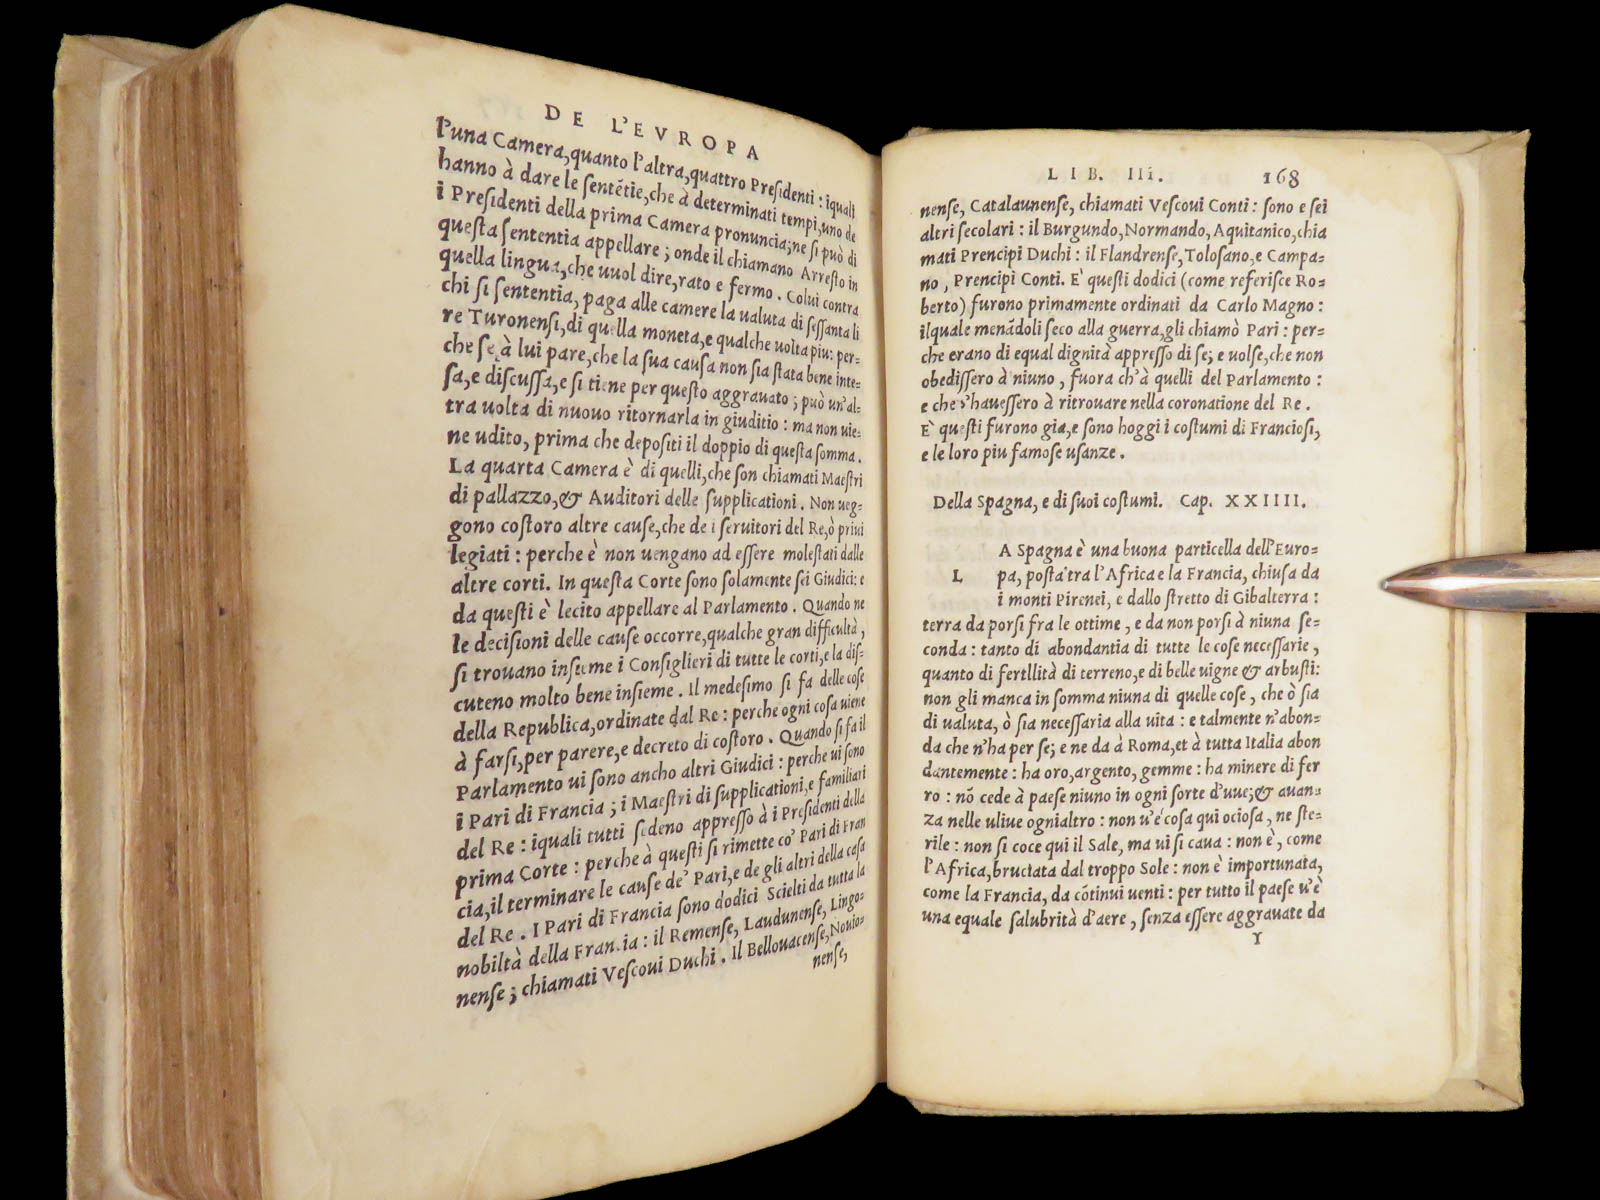 DE L'EVROPA
l'una Camera, quanto l'altra, quattro Presidenti : iquali
hanno à dare le sentẽtie, che à determinati tempi, uno de
i Presidenti della prima Camera pronuncia; ne si può di
questa sententia appellare ; onde il chiamano Arresto in
quella lingua, che uuol dire, rato e fermo . Colui contra
chi si sententia, paga alle camere la ualuta di sessanta li
re Turonensi, di quella moneta, e qualche uolta piu: per=
che se à lui pare, che la sua causa non sia stata bene inte=
sa, e discussa, e si tiene per questo aggrauato ; può un'al=
tra uolta di nuouo ritornarla in giuditio : ma non uie=
ne udito, prima che depositi il doppio di questa somma .
La quarta Camera è di quelli, che son chiamati Maestri
di pallazzo, & Auditori delle supplicationi . Non ueg=
gono costoro altre cause, che de i seruitori del Re, ò priui
legiati : perche è non uengano ad essere molestati dalle
altre corti. In questa Corte sono solamente sei Giudici: e
da questi è lecito appellare al Parlamento . Quando ne
le decisioni delle cause occorre, qualche gran difficultà ,
si trouano insieme i Consiglieri di tutte le corti, e la dis=
cuteno molto bene insieme . Il medesimo si fa delle cose
della Republica, ordinate dal Re : perche ogni cosa uiene
à farsi, per parere, e decreto di costoro . Quando si fa il
Parlamento ui sono ancho altri Giudici : perche ui sono
i Pari di Francia ; i Maestri di supplicationi, e familiari
del Re : iquali tutti sedeno appresso à i Presidenti della
prima Corte : perche à questi si rimette co' Pari di Fran
cia, il terminare le cause de' Pari, e de gli altri della casa
del Re . I Pari di Francia sono dodici Scielti da tutta la
nobiltà della Francia : il Remense, Laudunense, Lingo=
nense ; chiamati Vescoui Duchi . Il Bellouacense, Nouio=
nense,
LIB. III. 168
nense, Catalaunense, chiamati Vescoui Conti : sono e sei
altri secolari : il Burgundo, Normando, Aquitanico, chia
mati Prencipi Duchi : il Flandrense, Tolosano, e Campa=
no , Prencipi Conti. E' questi dodici (come referisce Ro=
berto) furono primamente ordinati da Carlo Magno :
ilquale menãdoli seco alla guerra, gli chiamò Pari : per=
che erano di equal dignità appresso di se; e uolse, che non
obedissero à niuno , fuora ch'à quelli del Parlamento :
e che s'hauessero à ritrouare nella coronatione del Re .
E' questi furono gia, e sono hoggi i costumi di Franciosi,
e le loro piu famose usanze .
Della Spagna, e di suoi costumi. Cap. XXIIII.
A Spagna è una buona particella dell'Euro=
L pa, posta tra l'Africa e la Francia, chiusa da
i monti Pirenei, e dallo stretto di Gibalterra :
terra da porsi fra le ottime , e da non porsi à niuna se=
conda : tanto di abondantia di tutte le cose necessarie ,
quanto di fertllità di terreno, e di belle uigne & arbusti:
non gli manca in somma niuna di quelle cose , che ò sia
di ualuta, ò sia necessaria alla uita : e talmente n'abon=
da che n'ha per se; e ne da à Roma, et à tutta Italia abon
dantemente : ha oro, argento, gemme : ha minere di fer
ro : nõ cede à paese niuno in ogni sorte d'uue; & auan=
za nelle uliue ognialtro : non u'è cosa qui ociosa , ne ste=
rile : non si coce qui il Sale, ma ui si caua : non è , come
l'Africa, bruciata dal troppo Sole : non è importunata,
come la Francia, da cõtinui uenti : per tutto il paese u'è
una equale salubrità d'aere , senza essere aggrauate da
Y